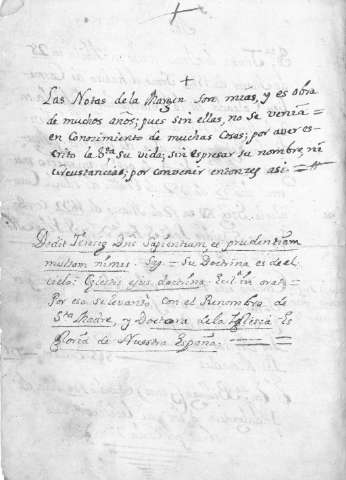 +
Las Notas de la Margen son mias, y es obra
de muchos años; pues sin ellas, no se venia =
en Conocimiento de muchas Cosas; por aver es=
crito la Sta. su vida; sin espresar su nombre, ni
circunstancias; por convenir entonces asi =
Dedit Teresiæ Dns Sapientiam, et prudentiam
multam nimis. = Su Doctrina es de el
cielo: Cælestis ejus doctrina. Eccl. in orat. =
Por eso se levantó con el Renombre de
Sta Madre, y Doctora de la Iglesia Es
Gloria de Nuestra España. =